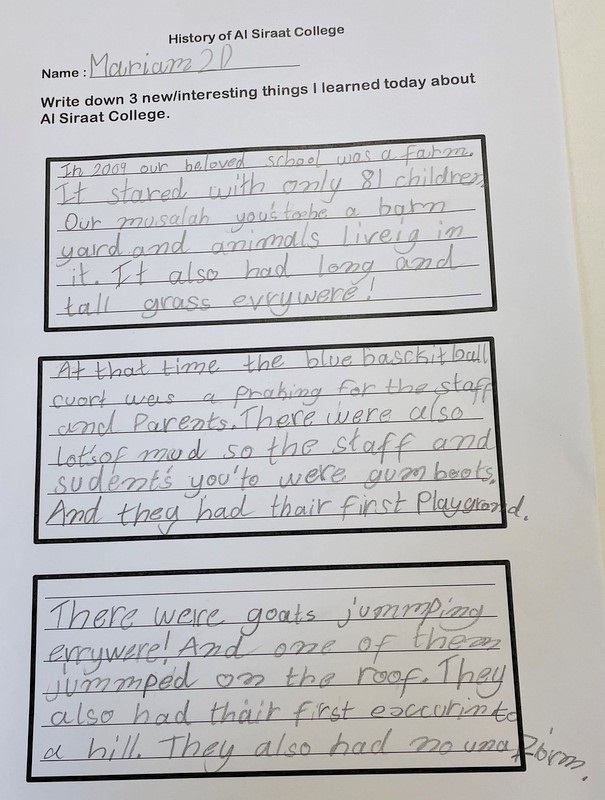 History of Al Siraat College
Name : Mariam 2D
Write down 3 new/interesting things I learned today about
Al Siraat College.
In 2009 our beloved school was a farm.
It stared with only 81 children
Our musalah you's to be a barn
yard and animals liveig in
it. It also had long and
tall grass evrywere!
At that time the blue basckit ball
cuort was a praking for the staff
and Parents. There were also
lots of mud so the staff and
sudent's you'to were gum boots.
And they had thair first Playgrond.
There were goats jummping
evrywere! And one of them
jummped on the roof. They
also had thair first exccurin to
a hill. They also had no unaform.